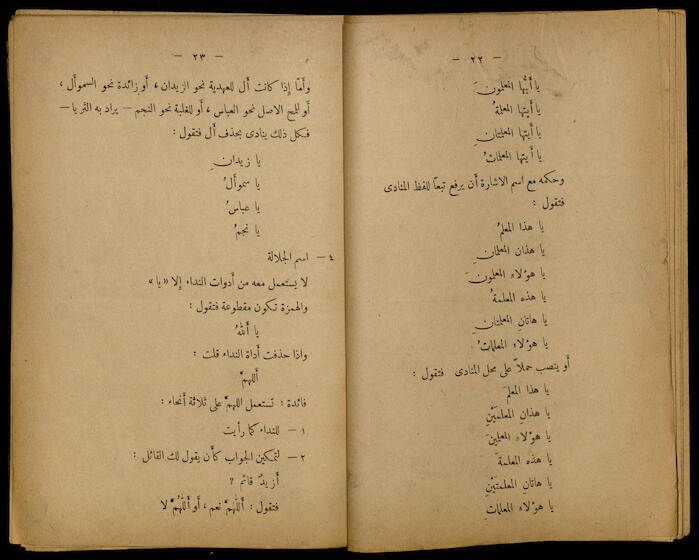 — ٢٢ —
يا أيُّها المعلمونَ
يا أيتها المعلمةُ
يا أيتها المعلمتانِ
يا أيتها المعلماتُ
وحكمه مع اسم الاشارة أن يرفع تبعاً للفظ المنادى
فتقول :
يا هذا المعلمُ
يا هذان المعلمانِ
يا هؤلاء المعلمونَ
يا هذه المعلمةُ
يا هاتانِ المعلمتانِ
يا هؤلاء المعلماتُ
أو ينصب حملاً على محل المنادى فتقول :
يا هذا المعلمَ
يا هذانِ المعلمَيْنِ
يا هؤلاء المعلمينَ
يا هذه المعلمةَ
يا هاتانِ المعلمتَيْنِ
يا هؤلاء المعلماتِ
— ٢٣ —
وأمّا إذا كانت أل للعهدية نحو الزيدان ، أو زائدة نحو السموأل ،
أو للمح الاصل نحو العباس ، أو للغلبة نحو النجم — يراد به الثريا —
فكل ذلك ينادى بحذف أل فتقول :
يا زيدانِ
يا سموألُ
يا عباسُ
يا نجمُ
٤ — اسم الجلالة
لا يستعمل معه من أدوات النداء إلا «يا»
والهمزة تكون مقطوعة فتقول :
يا أللهُ
واذا حذفت أداة النداء قلت :
أللهمَّ
فائدة : تستعمل اللهمَّ على ثلاثة أنحاء :
١ — للنداء كما رأيت
٢ — لتمكين الجواب كأن يقول لك القائل :
أزيدٌ قائم ؟
فتقول : أللهُمَّ نعم ، أو أللهُمَّ لا